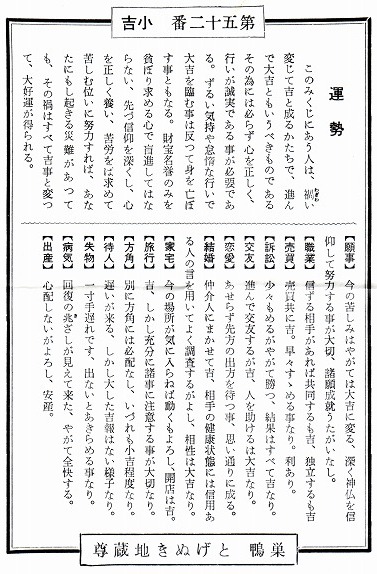 第五十二番 小吉
運勢
このみくじにあう人は、禍い
変じて吉と成るかたちで、進ん
で大吉ともいうべきものである
その為には必らず心を正しく、
行いが誠実である事が必要であ
る。ずるい気持や怠惰な行いで
大吉を臨む事は反つて身を亡ぼ
す事ともなる。財宝名誉のみを
貪ぼり求める心で盲進してはな
らない、先づ信仰を深くし、心
を正しく養い、苦労をば求めて
苦しむ位いに努力すれば、あな
たにもし起きる災難があつて
も、その禍はすべて吉事と変つ
て、大好運が得られる。
【願事】今の苦しみはやがては大吉に変る、深く神仏を信
仰して努力する事が大切、諸願成就うたがいなし。
【職業】信ずる相手があれば共同するも吉、独立するも吉
【売買】売買共に吉。早々すゝめる事なり。利あり。
【訴訟】少々もめるがやがて勝つ、結果はすべて吉なり。
【交友】進んで交友するが吉、人を助けるは大吉なり。
【恋愛】あせらず先方の出方を待つ事、思い通りに成る。
【結婚】仲介人にまかせて吉、相手の健康状態には信用あ
る人の言を用いてよく調査するがよし、相性は大吉なり。
【家宅】今の場所が気に入らねば動くもよろし、開店は吉。
【旅行】吉、しかし充分に諸事に注意する事が大切なり。
【方角】別に方角には必配なし、いづれも小吉程度なり。
【待人】遅いが来る、しかし大した吉報はない様子なり。
【失物】一寸手遅れです、出ないとあきらめる事なり。
【病気】回復の兆ざしが見えて来た、やがて全快する。
【出産】心配しないがよろし、安産。
巣鴨 とげぬき地蔵尊